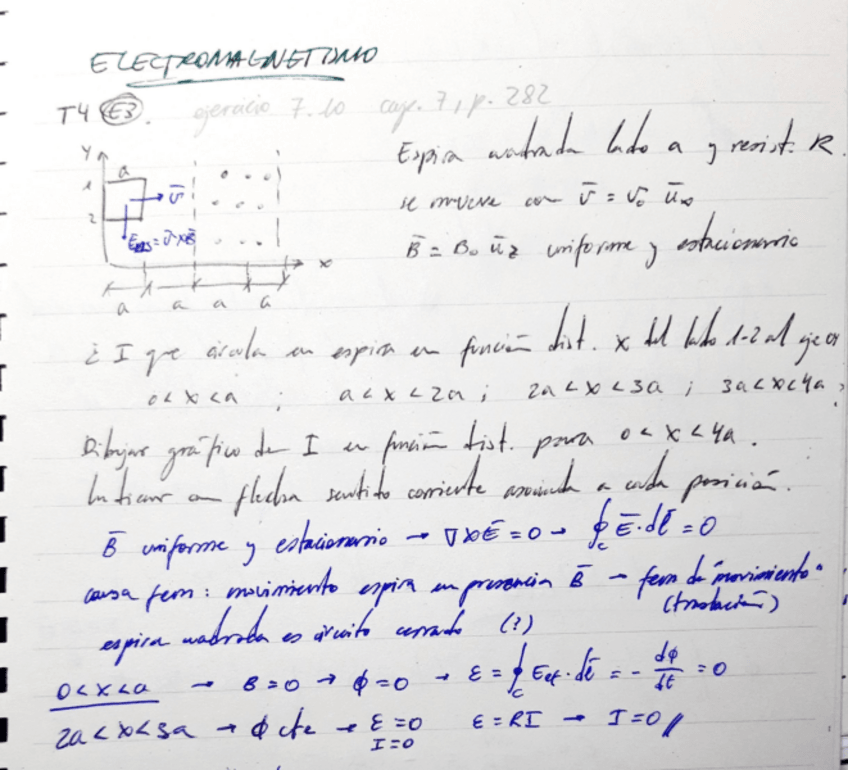 ELECTROMAGNETISMO
T4 E3. ejercicio 7.10 cap. 7, p. 282
Y
a
1
v̄
2
Ēef = v̄ x B̄
x
a a a a
Espira cuadrada lado a y resist. R
se mueve con v̄ = v₀ ūx
B̄ = B₀ ūz uniforme y estacionario
¿ I que circula en espira en función dist. x del lado 1-2 al eje oy
0 < x < a ; a < x < 2a ; 2a < x < 3a ; 3a < x < 4a ?
Dibujar gráfico de I en función dist. para 0 < x < 4a.
Indicar con flecha sentido corriente asociada a cada posición.
B̄ uniforme y estacionario → ∇ x Ē = 0 → ∮c Ē · dl̄ = 0
causa fem : movimiento espira en presencia B̄ → fem de "movimiento"
(traslación)
espira cuadrada es circuito cerrado (?)
0 < x < a → B = 0 → ϕ = 0 → ε = ∮c Eef · dl̄ = - dϕ/dt = 0
2a < x < 3a → ϕ cte → ε = 0 ε = RI → I = 0 //
I = 0